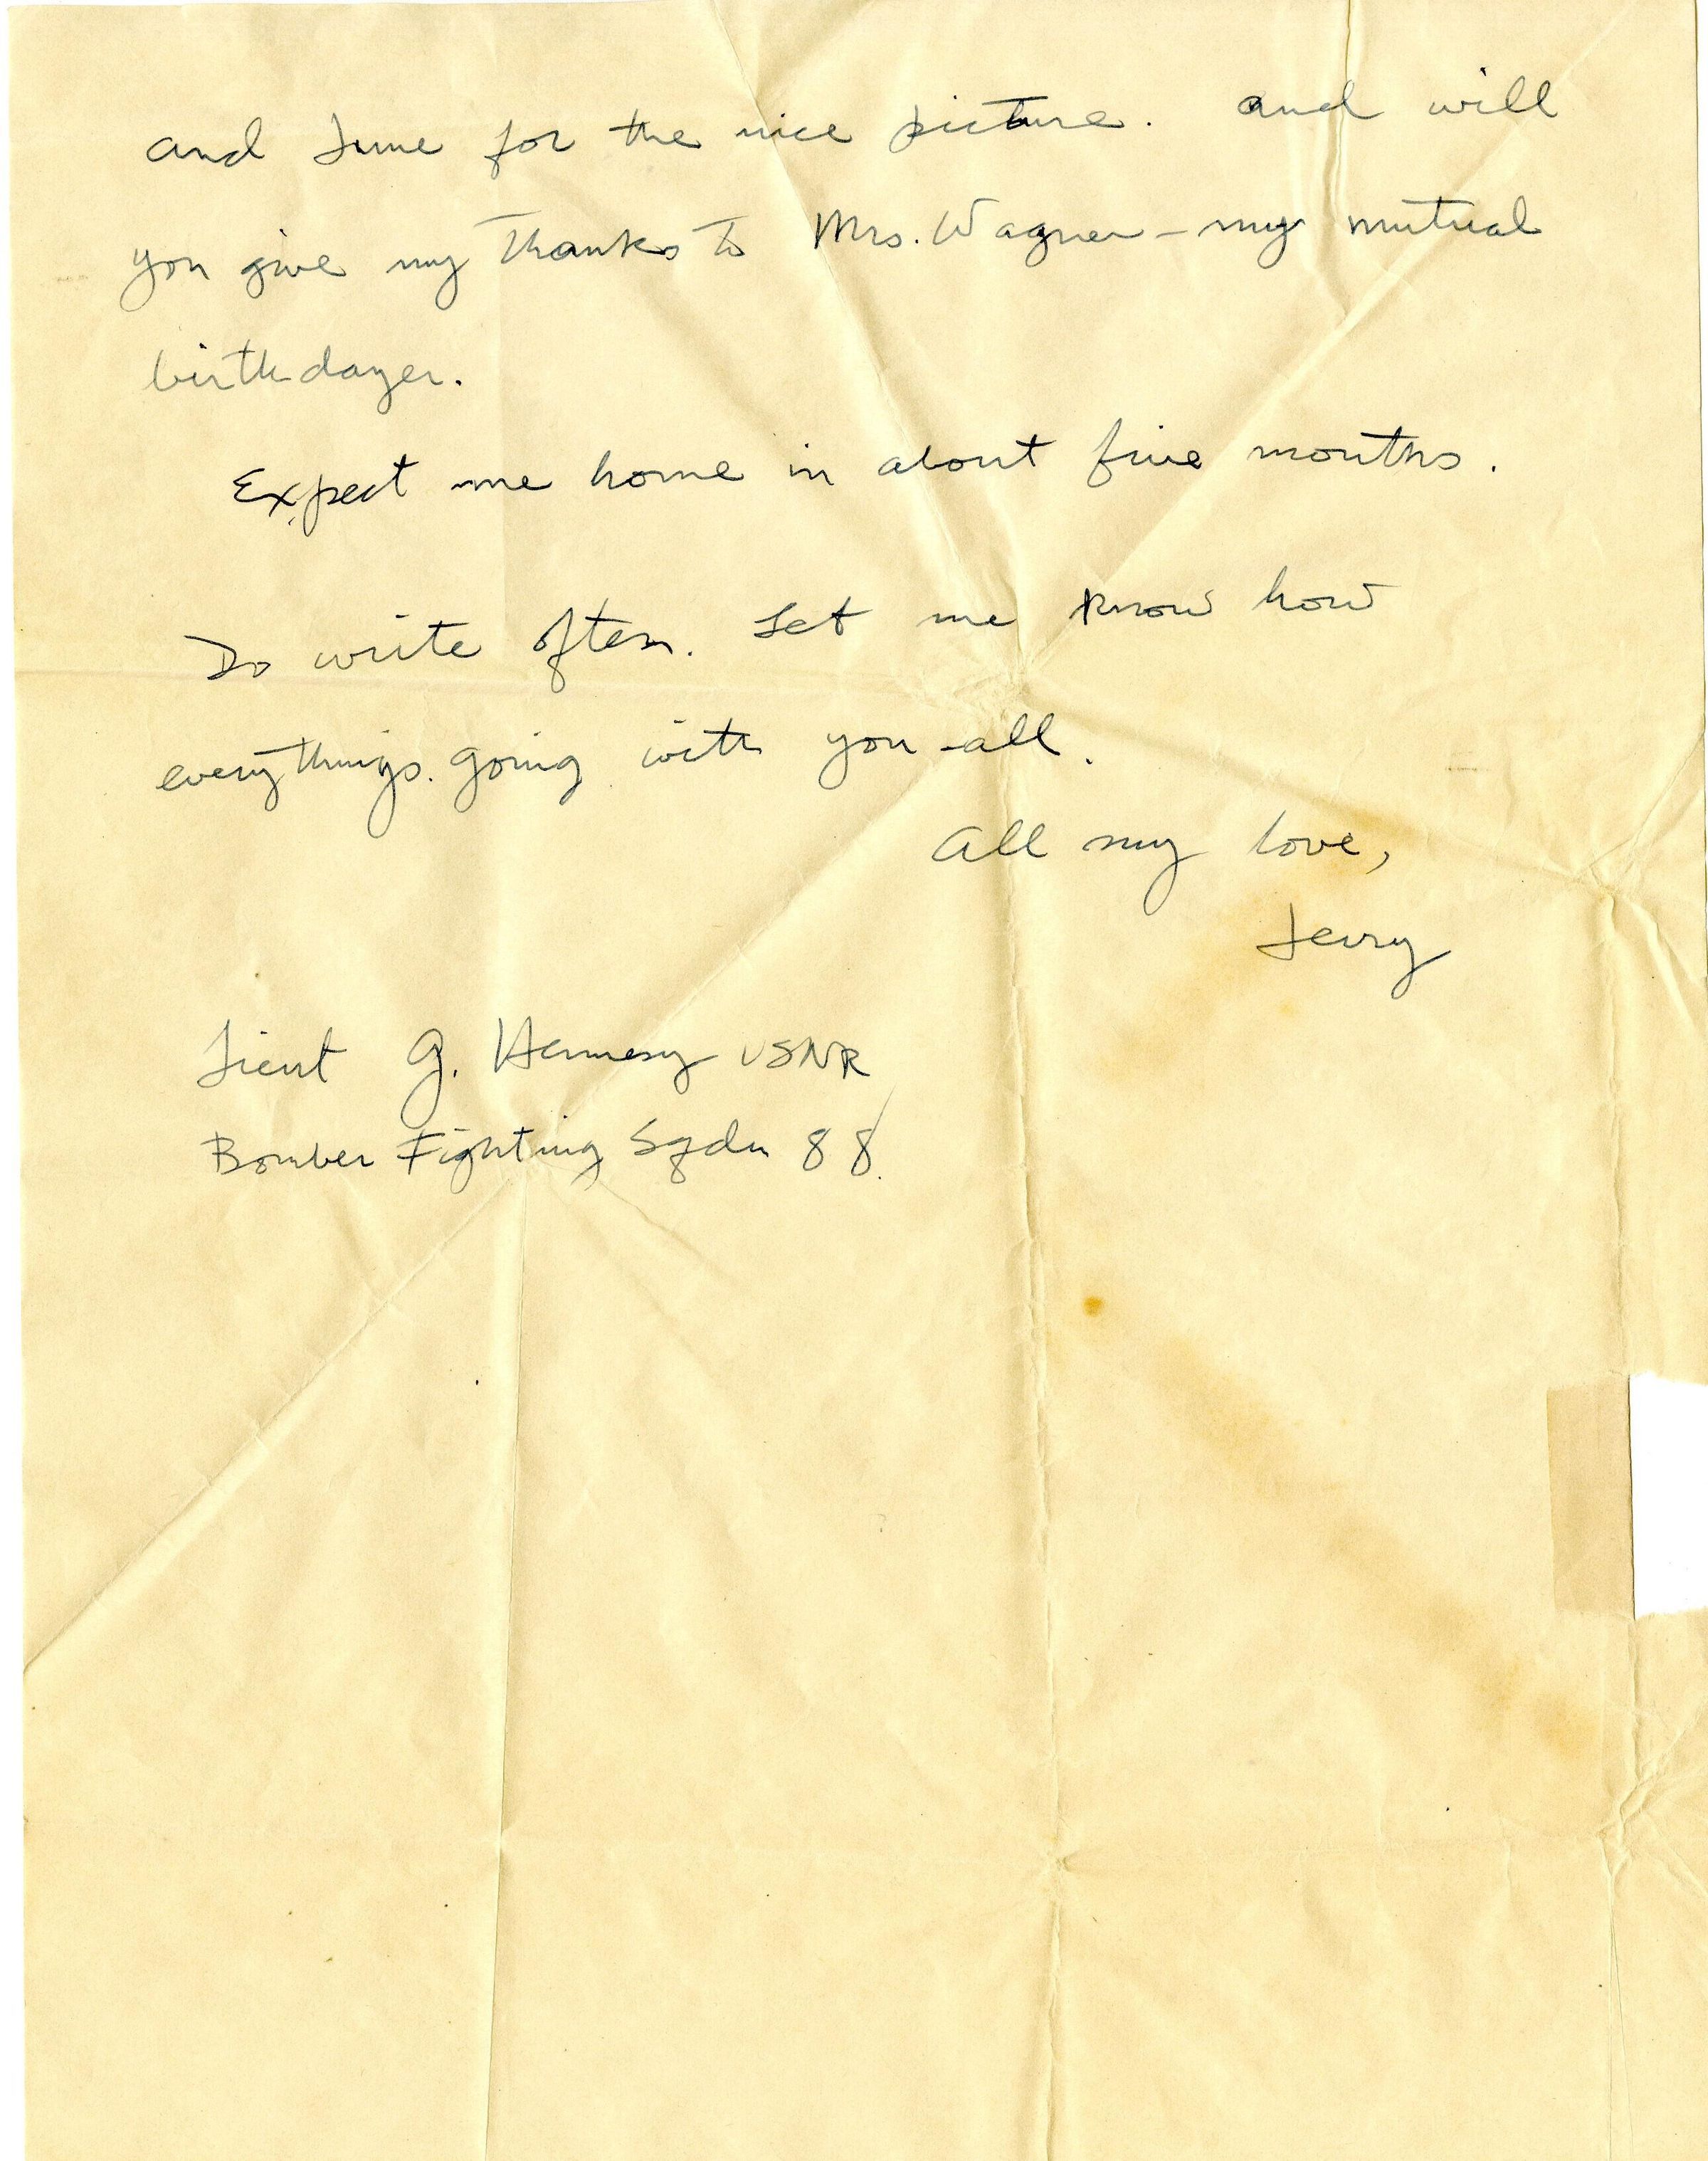 and June for the nice picture. and will
you give my thanks to Mrs. Wagner - my mutual
birthdayer.
Expect me home in about five months.
Do write often. Let me know how
everythings going with you-all.
All my love,
Jerry
Lieut G. Hennesy USNR
Bomber Fighting Sqdn 88.